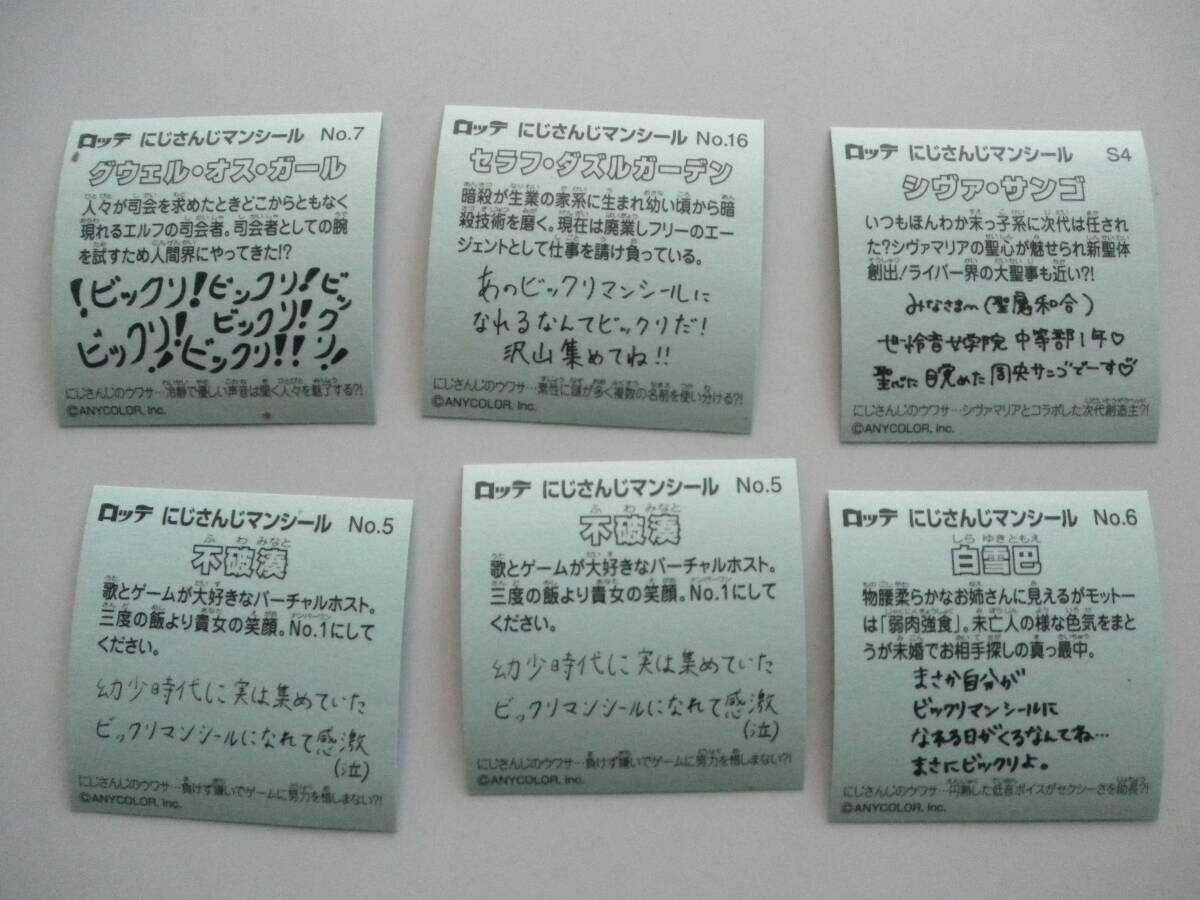 ロッテ にじさんじマンシール No.7
グウェル・オス・ガール
人々が司会を求めたときどこからともなく
現れるエルフの司会者。司会者としての腕
を試すため人間界にやってきた!?
!ビックリ!ビックリ!ビッ
ビックリ!ビックリ!クリ!
ビックリ!!
にじさんじのウワサ…冷静で優しい声音は聞く人々を魅了する?!
©ANYCOLOR, Inc.
ロッテ にじさんじマンシール No.16
セラフ・ダズルガーデン
暗殺が生業の家系に生まれ幼い頃から暗
殺技術を磨く。現在は廃業しフリーのエー
ジェントとして仕事を請け負っている。
あのビックリマンシールに
なれるなんてビックリだ!
沢山集めてね!!
にじさんじのウワサ…素性に謎が多く複数の名前を使い分ける?!
©ANYCOLOR, Inc.
ロッテ にじさんじマンシール S4
シヴァ・サンゴ
いつもほんわか末っ子系に次代は任され
た?シヴァマリアの聖心が魅せられ新聖体
創出!ライバー界の大聖事も近い?!
みなさま〜(聖属和合)
世怜音女学院 中等部1年♡
聖べに目覚めた 周央サンゴでーす♡
にじさんじのウワサ…シヴァマリアとコラボした次代創造主?!
©ANYCOLOR, Inc.
ロッテ にじさんじマンシール No.5
ふわ みなと
不破湊
歌とゲームが大好きなバーチャルホスト。
三度の飯より貴女の笑顔。No.1にして
ください。
幼少時代に実は集めていた
ビックリマンシールになれて感激
(泣)
にじさんじのウワサ…負けず嫌いでゲームに努力を惜しまない?!
©ANYCOLOR, Inc.
ロッテ にじさんじマンシール No.5
ふわ みなと
不破湊
歌とゲームが大好きなバーチャルホスト。
三度の飯より貴女の笑顔。No.1にして
ください。
幼少時代に実は集めていた
ビックリマンシールになれて感激
(泣)
にじさんじのウワサ…負けず嫌いでゲームに努力を惜しまない?!
©ANYCOLOR, Inc.
ロッテ にじさんじマンシール No.6
しら ゆきともえ
白雪巴
物腰柔らかなお姉さんに見えるがモットー
は「弱肉強食」。未亡人の様な色気をまと
うが未婚でお相手探しの真っ最中。
まさか自分が
ビックリマンシールに
なれる日がくるなんてね…
まさにビックリよ。
にじさんじのウワサ…円熟した低音ボイスがセクシーさを助長?!
©ANYCOLOR, Inc.